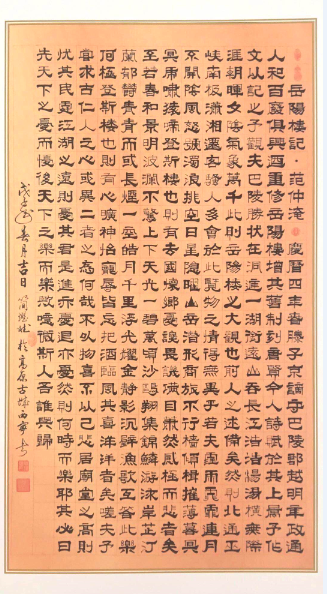 岳陽樓記·范仲淹 慶曆四年春滕子京謫守巴陵郡越明年政通
人和百廢俱興迺重修岳陽樓增其舊制刻唐賢今人詩賦於其上屬予作
文以記之予觀夫巴陵勝狀在洞庭一湖銜遠山吞長江浩浩湯湯橫無際
涯朝暉夕陰氣象萬千此則岳陽樓之大觀也前人之述備矣然則北通巫
峽南極瀟湘遷客騷人多會於此覽物之情得無異乎若夫霪雨霏霏連月
不開陰風怒號濁浪排空日星隱曜山岳潛形商旅不行檣傾楫摧薄暮冥
冥虎嘯猿啼登斯樓也則有去國懷鄉憂讒畏譏滿目蕭然感極而悲者矣
至若春和景明波瀾不驚上下天光一碧萬頃沙鷗翔集錦鱗游泳岸芷汀
蘭郁鬱青青而或長煙一空皓月千里浮光耀金靜影沉璧漁歌互答此樂
何極登斯樓也則有心曠神怡寵辱皆忘把酒臨風其喜洋洋者矣嗟夫予
嘗求古仁人之心或異二者之為何哉不以物喜不以己悲居廟堂之高則
憂其民處江湖之遠則憂其君是進亦憂退亦憂然則何時而樂耶其必曰
先天下之憂而憂後天下之樂而樂歟噫微斯人吾誰與歸
春月吉日 於高原古城西寧